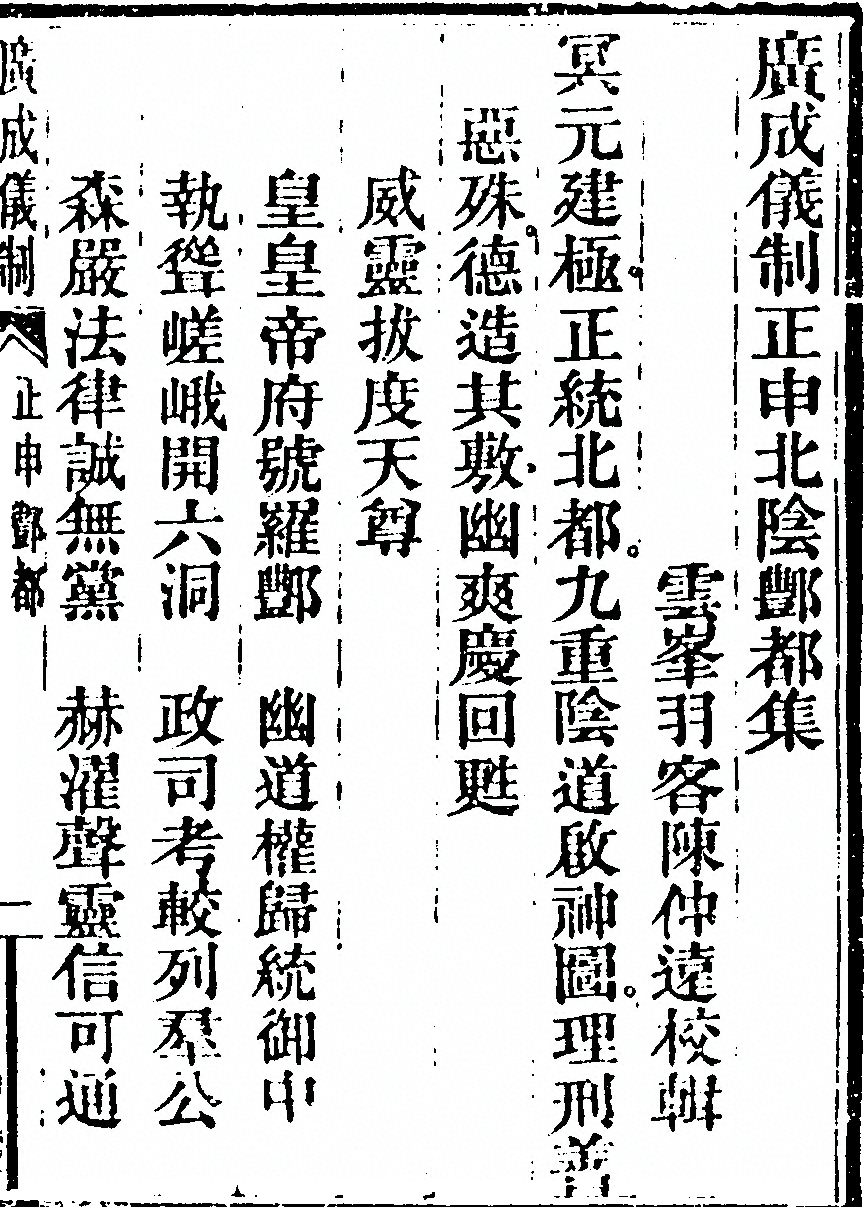 廣成儀制正申北陰酆都集
雲峯羽客陳仲遠校輯
冥元建極正統北都。九重陰道啟神圖。理刑善
惡殊。德造其敷幽爽慶回甦
威靈拔度天尊
皇皇帝府號羅酆　幽道權歸統御中
執聳嵯峨開六洞　政司考較列羣公
森嚴法律誠無黨　赫濯聲靈信可通
廣成儀制　正申酆都　一